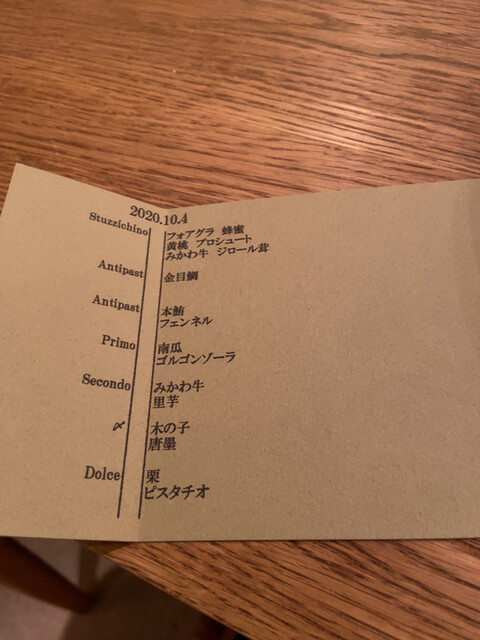 2020.10.4
Stuzzichino フォアグラ 蜂蜜
黄桃 プロシュート
みかわ牛 ジロール茸
Antipast 金目鯛
Antipast 本鮪
フェンネル
Primo 南瓜
ゴルゴンゾーラ
Secondo みかわ牛
里芋
〆 木の子
唐墨
Dolce 栗
ピスタチオ